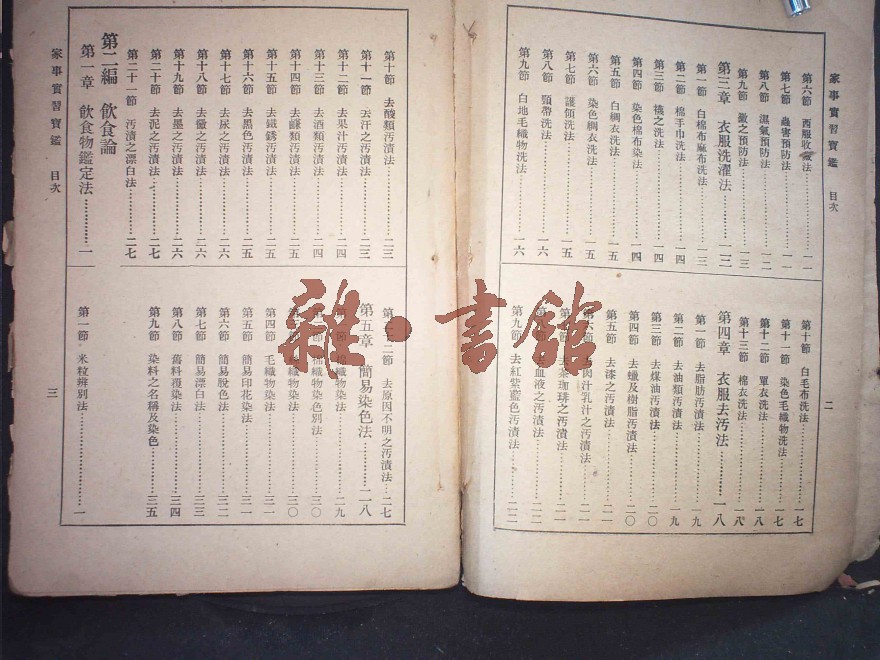 家事實習寶鑑 目次
第六節 西服收
法……一一
第七節 蟲害預防法……一一
第八節 濕氣預防法……一二
第九節 黴之預防法……一二
第三章 衣服洗濯法……一三
第一節 白棉布麻布洗法……一三
第二節 棉手巾洗法……一四
第三節 襪之洗法……一四
第四節 染色棉布染法……一四
第五節 白綢衣洗法……一五
第六節 染色綢衣洗法……一五
第七節 護領洗法……一五
第八節 頸帶洗法……一六
第九節 白地毛織物洗法……一六
第十節 白毛布洗法……一七
第十一節 染色毛織物洗法……一七
第十二節 單衣洗法……一八
第十三節 棉衣洗法……一八
第四章 衣服去汚法……一八
第一節 去脂肪汚漬法……一九
第二節 去油類汚漬法……一九
第三節 去煤油汚漬法……二〇
第四節 去蠟及樹脂汚漬法……二〇
第五節 去漆之汚漬法……二一
肉汁乳汁之汚漬法……二一
去茶珈琲之汚漬法……二一
血液之汚漬法……二二
第九節 去紅紫藍色汚漬法……二二
二
家事實習寶鑑 目次
第十節 去酸類汚漬法……二三
第十一節 去汗之汚漬法……二三
第十二節 去果汁汚漬法……二四
第十三節 去酒類汚漬法……二四
第十四節 去鹻類汚漬法……二五
第十五節 去鐵銹汚漬法……二五
第十六節 去黑色汚漬法……二五
第十七節 去尿之汚漬法……二六
第十八節 去黴之汚漬法……二六
第十九節 去墨之汚漬法……二六
第二十節 去泥之汚漬法……二七
第二十一節 汚漬之漂白法……二七
第二編 飲食論
第一章 飲食物鑑定法……一
二節 去原因不明之汚漬法……二七
第五章 簡易染色法……二八
織物染法……二九
織物染色別法……三〇
織物染法……三〇
第四節 毛織物染法……三一
第五節 簡易印花染法……三一
第六節 簡易脫色法……三二
第七節 簡易漂白法……三三
第八節 舊料復染法……三四
第九節 染料之名稱及染色……三五
第一節 米粒辨別法……一
三
雜·書館